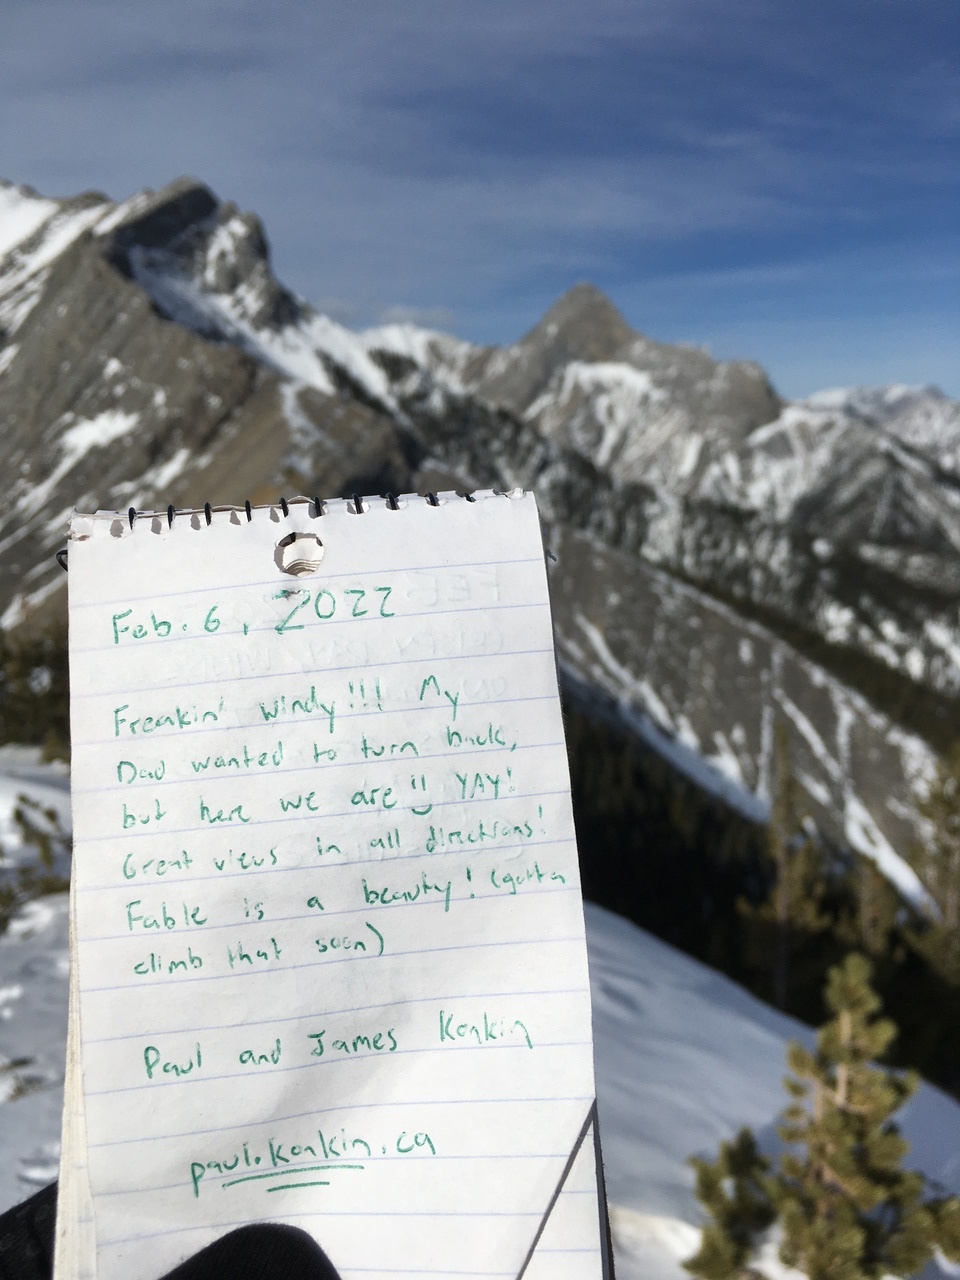 Feb. 6, 2022
Freakin' windy!!! My
Dad wanted to turn back,
but here we are YAY!
Great views in all directions!
Fable is a beauty! (gotta
climb that soon)
Paul and James Konkin
paul.konkin.ca